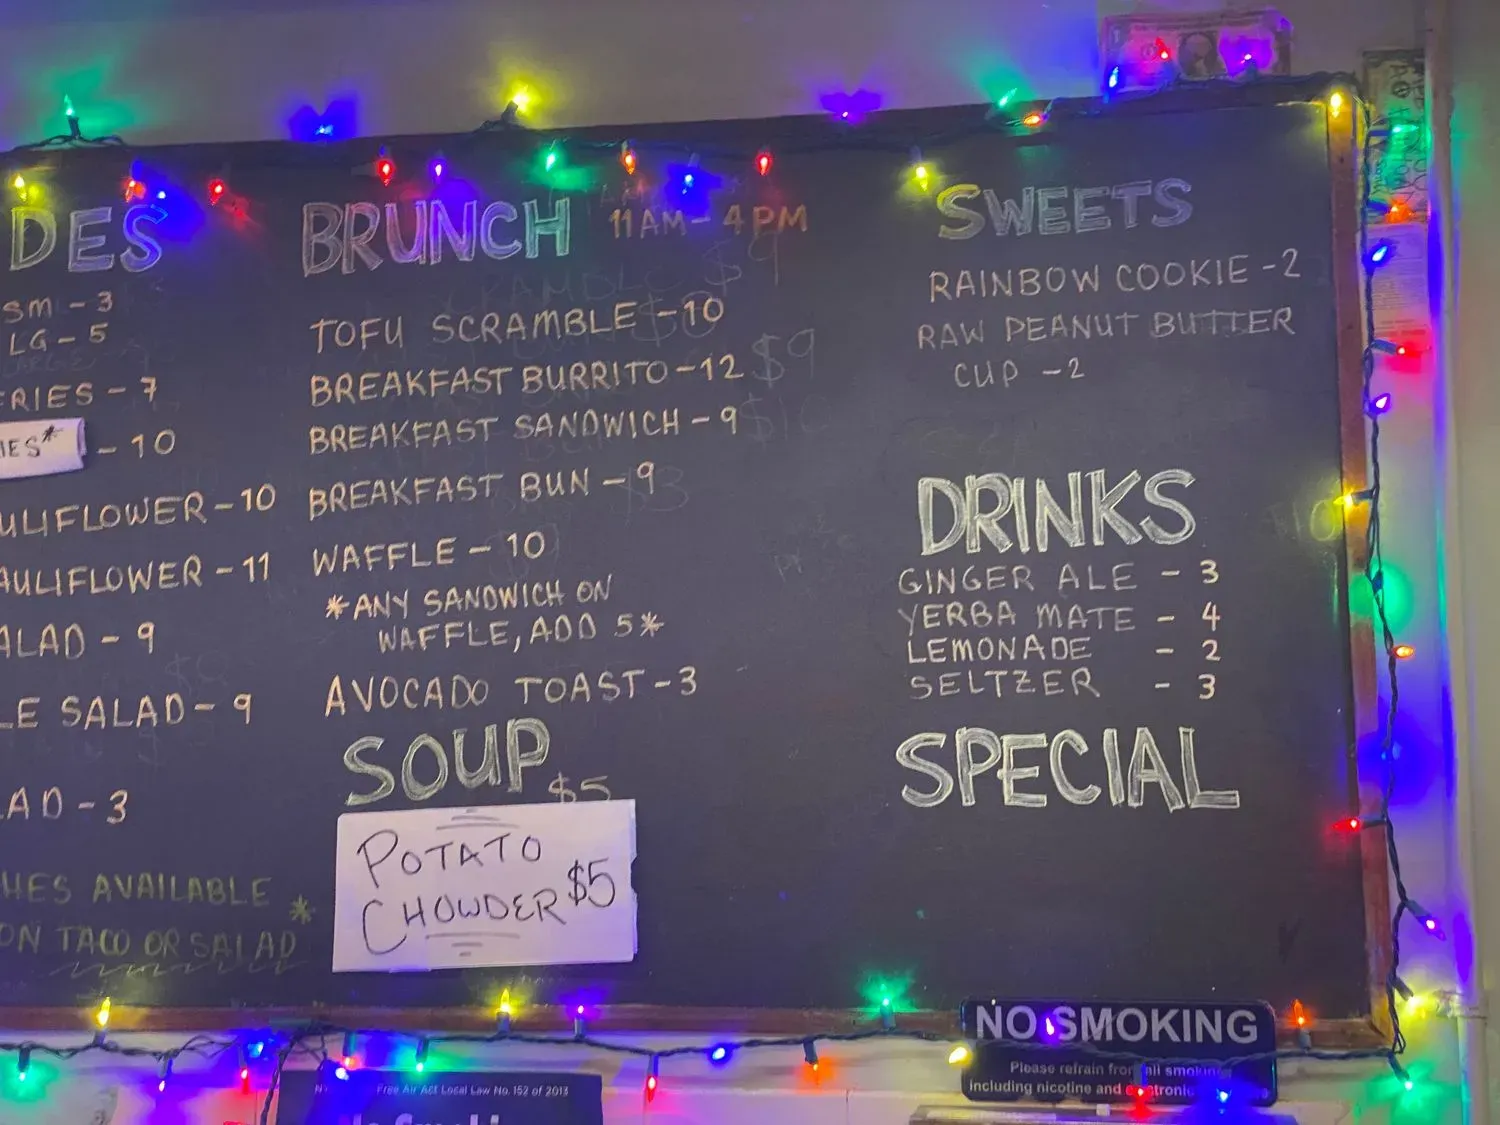 DES
SM - 3
LG - 5
FRIES - 7
IES* - 10
AULIFLOWER - 10
AULIFLOWER - 11
ALAD - 9
LE SALAD - 9
LAD - 3
HES AVAILABLE *
ON TACO OR SALAD
BRUNCH 11AM - 4PM
TOFU SCRAMBLE - 10
BREAKFAST BURRITO - 12
BREAKFAST SANDWICH - 9
BREAKFAST BUN - 9
WAFFLE - 10
*ANY SANDWICH ON
WAFFLE, ADD 5*
AVOCADO TOAST - 3
SOUP
$5
POTATO
CHOWDER $5
SWEETS
RAINBOW COOKIE - 2
RAW PEANUT BUTTER
CUP - 2
DRINKS
GINGER ALE - 3
YERBA MATE - 4
LEMONADE - 2
SELTZER - 3
SPECIAL
NO SMOKING
Please refrain from all smoking
including nicotine and electronic
Free Air Act Local Law No. 152 of 2013